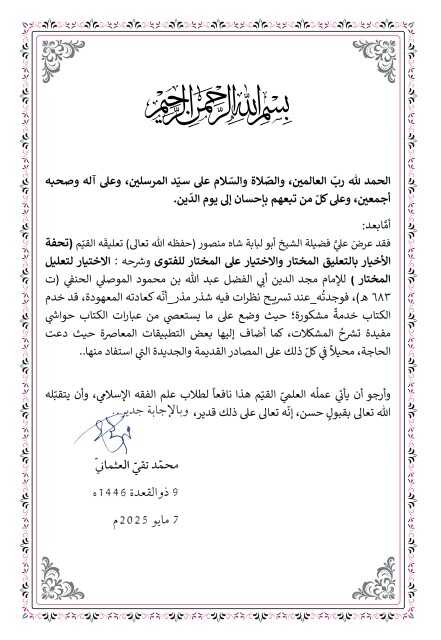 بسم الله الرحمن الرحيم
الحمد لله ربّ العالمين، والصّلاة والسّلام على سيّد المرسلين، وعلى آله وصحبه
أجمعين، وعلى كلّ من تبعهم بإحسان إلى يوم الدّين.
أمّا بعد:
فقد عرضَ عليَّ فضيلة الشيخ أبو لبابة شاه منصور (حفظه الله تعالى) تعليقَه القيّم (تحفة
الأخيار بالتعليق المختار والاختيار على المختار للفتوى وشرحه : الاختيار لتعليل
المختار ) للإمام مجد الدين أبي الفضل عبد الله بن محمود الموصلي الحنفي (ت
٦٨٣ ه)، فوجدتُه_عند تسريح نظرات فيه شذر مذر_أنّه كعادته المعهودة، قد خدم
الكتاب خدمةً مشكورة؛ حيث وضع على ما يستعصي من عبارات الكتاب حواشي
مفيدة تشرحُ المشكلات، كما أضاف إليها بعض التطبيقات المعاصرة حيث دعت
الحاجة، محيلاً في كلّ ذلك على المصادر القديمة والجديدة التي استفاد منها..
وأرجو أن يأتي عملُه العلميّ القيّم هذا نافعاً لطلاب علم الفقه الإسلامي، وأن يتقبّله
الله تعالى بقبولٍ حسن، إنّه تعالى على ذلك قدير، وبالإجابة جدير..
محمّد تقيّ العثمانيّ
9 ذوالقعدة 1446ه
7 مايو 2025م